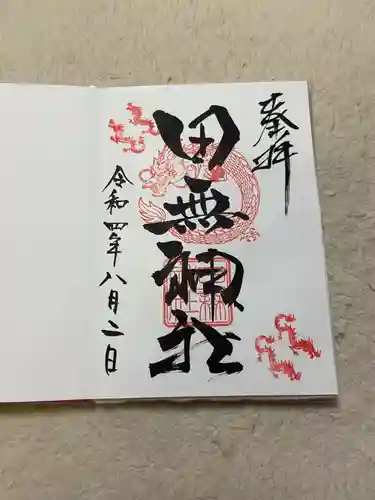 奉拝
田無神社
令和四年八月二日